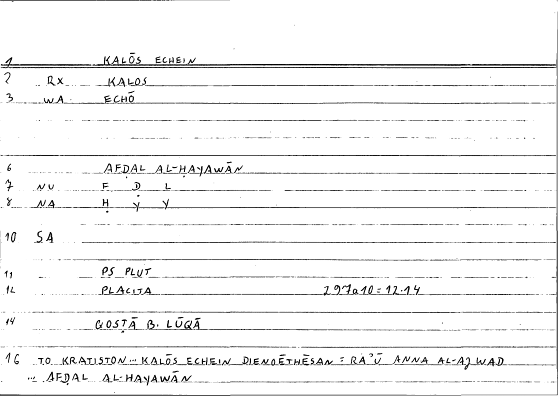 1 KALŌS ECHEIN
2 RX KALOS
3 WA ECHŌ
6 AFḌAL AL-ḤAYAWĀN
7 NU F Ḍ L
8 NA Ḥ Y Y
10 SA
11 PS PLUT
12 PLACITA 297a10 = 12.14
14 QOSṬĀ B. LŪQĀ
16 TO KRATISTON... KALŌS ECHEIN DIENOĒTHĒSAN = RAʾŪ ANNA AL-AǦWAD
... AFḌAL AL-HAYAWĀN